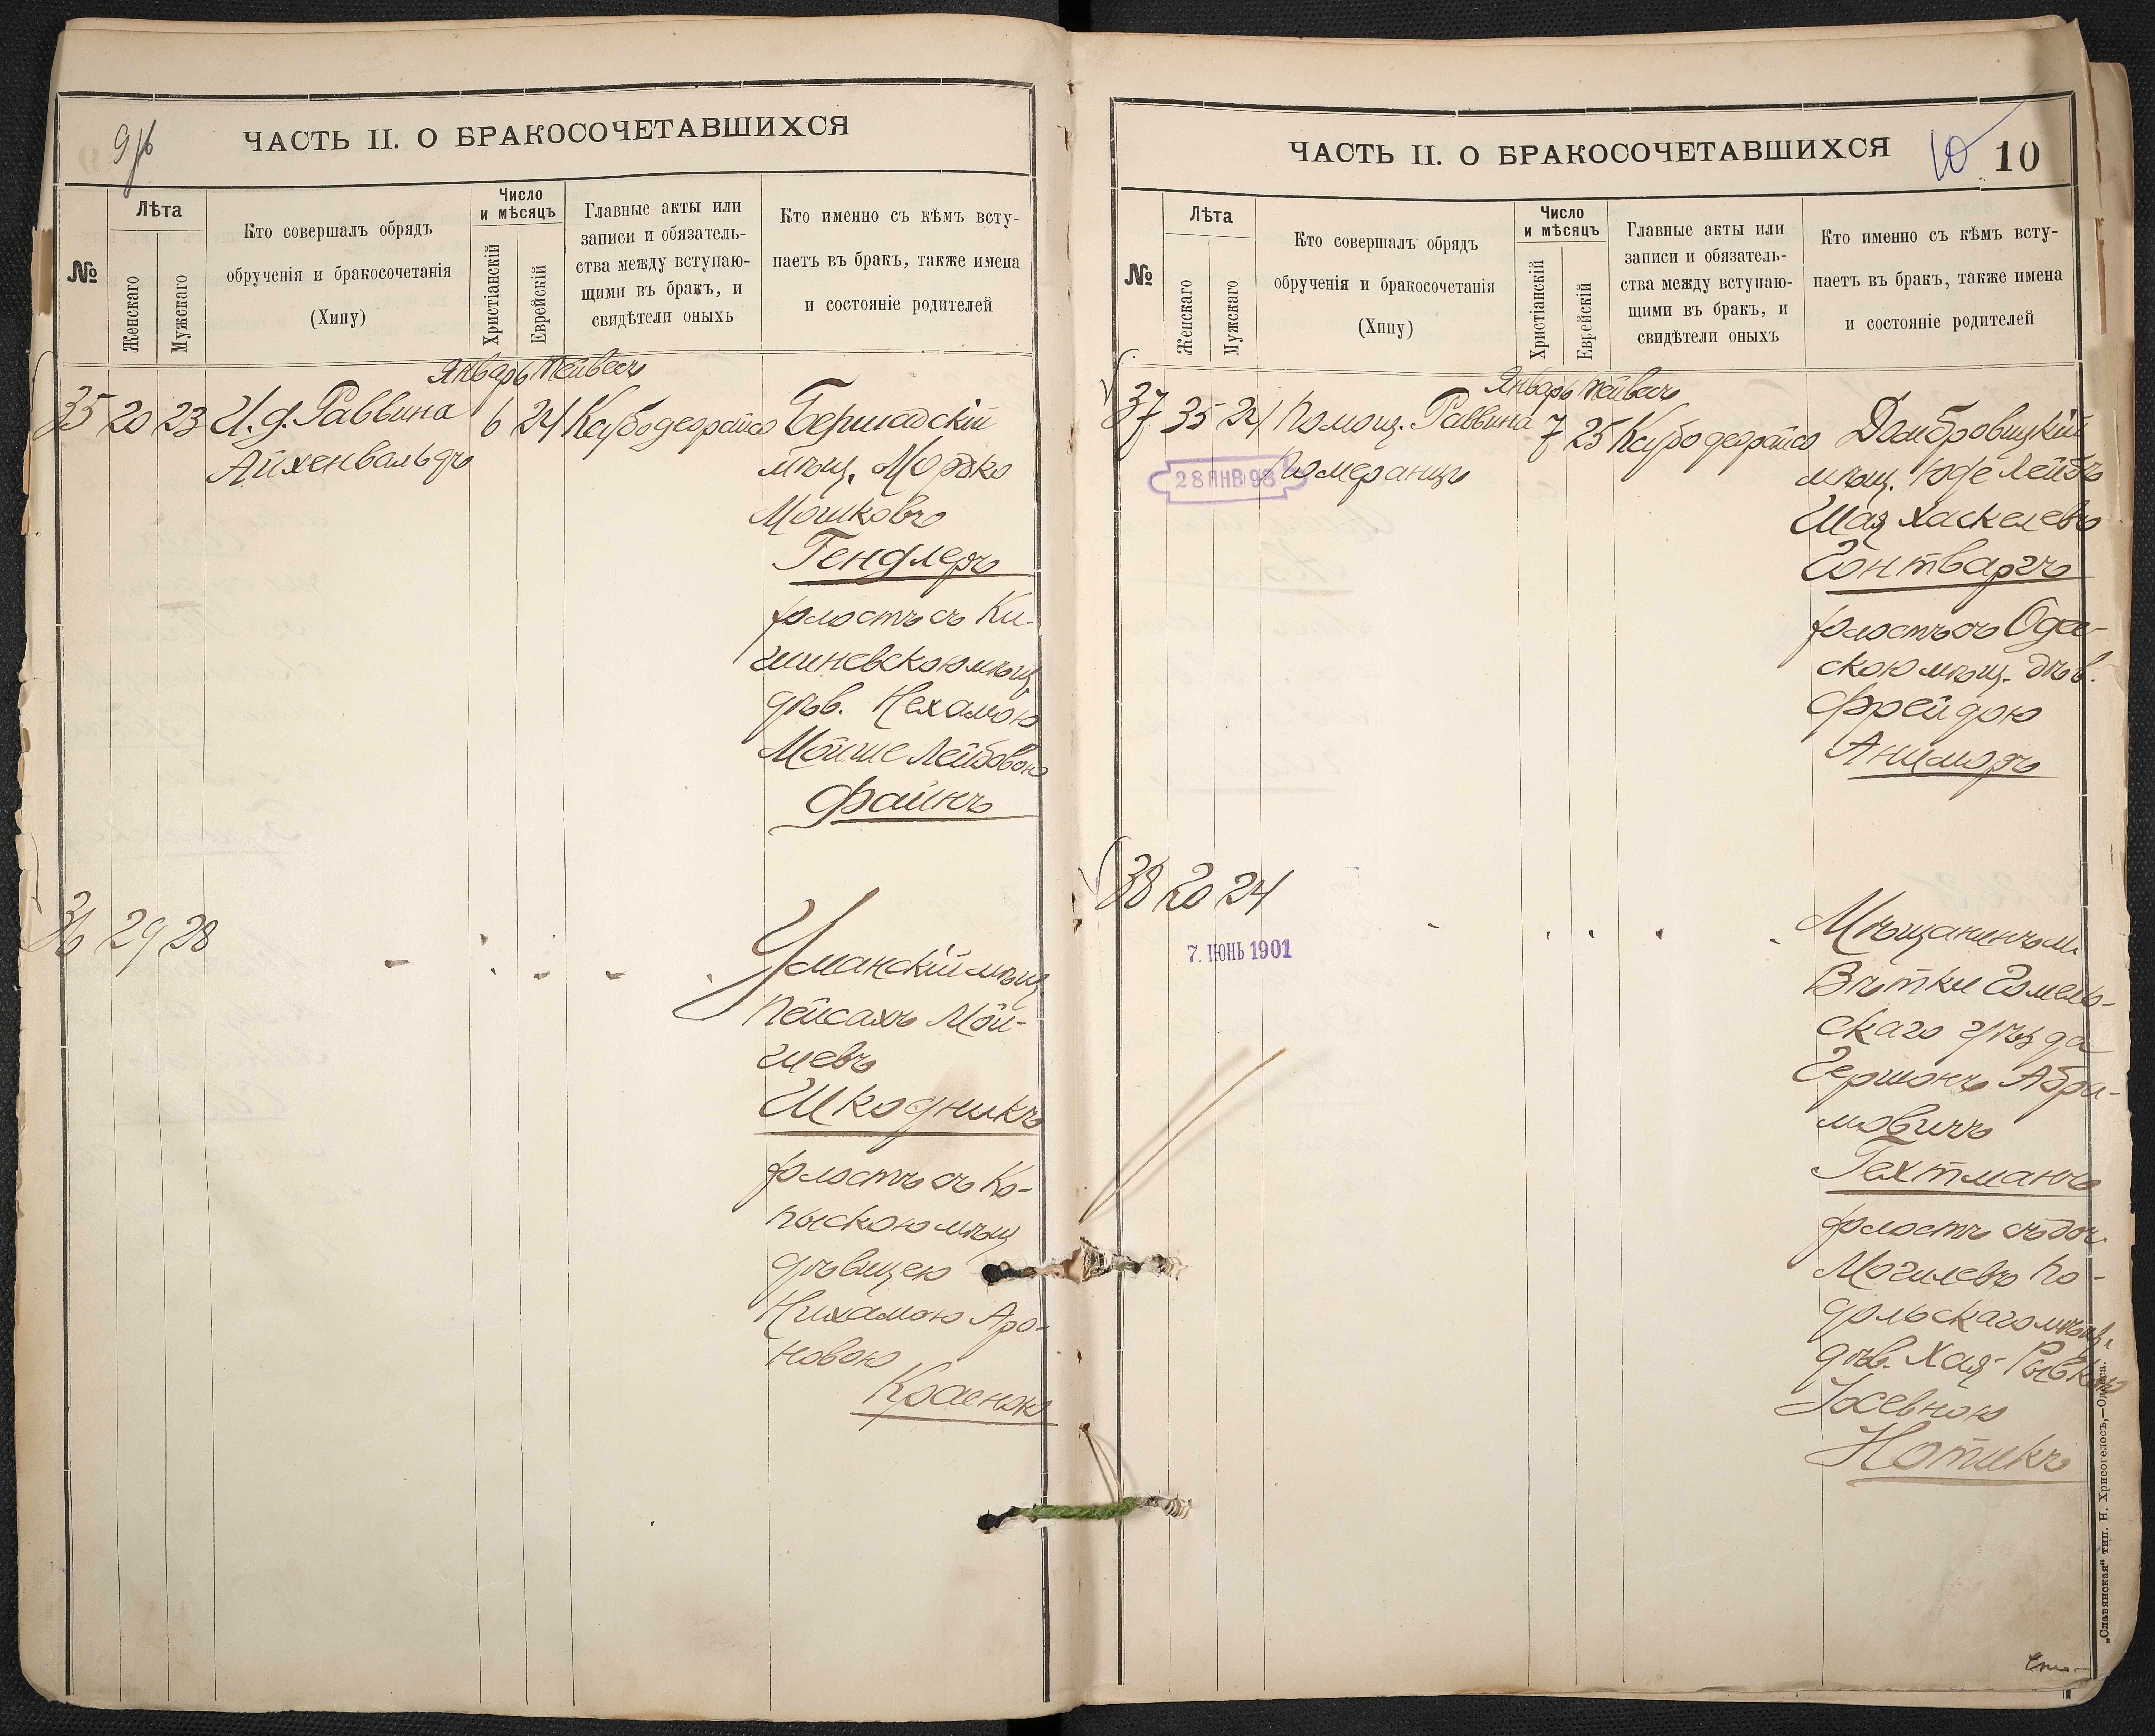 9/б
ЧАСТЬ II. О БРАКОСОЧЕТАВШИХСЯ
№
Лѣта
Женскаго
Мужскаго
Кто совершалъ обрядъ
обрученія и бракосочетанія
(Хипу)
Число
и мѣсяцъ
Христіанскій
Еврейскій
Главные акты или
записи и обязатель-
ства между вступаю-
щими въ бракъ, и
свидѣтели оныхъ
Кто именно съ кѣмъ всту-
паетъ въ бракъ, также имена
и состояніе родителей
Январь Тейвесъ
35 20 23 И.д. Раввина 6 24 Бершадскій
Айхенвальдъ
мѣщ. Мордко
Мошковъ
Гендлеръ
холостъ съ Ки-
шиневскою мѣщ.
дѣв. Нехамою
Мойше Лейбовою
Файнъ
36 29 28
Уманскій мѣщ.
Пейсахъ Мой-
шевъ
Шкодникъ
холостъ съ Ко-
пыскою мѣщ
дѣвицею
Нихамою Аро-
новою
Красною
ЧАСТЬ II. О БРАКОСОЧЕТАВШИХСЯ
10 10
№
Лѣта
Женскаго
Мужскаго
Кто совершалъ обрядъ
обрученія и бракосочетанія
(Хипу)
Число
и мѣсяцъ
Христіанскій
Еврейскій
Главные акты или
записи и обязатель-
ства между вступаю-
щими въ бракъ, и
свидѣтели оныхъ
Кто именно съ кѣмъ всту-
паетъ въ бракъ, также имена
и состояніе родителей
Январь Тейвесъ
37 35 24 Помощ. Раввина 7 25 Домбровицкій
28 ЯНВ 98
Померанцъ
мѣщ. Юде Лейбъ
Шая Хаскелевъ
Гонтваргъ
холостъ съ Оде-
скою мѣщ. дѣв.
Фрейдою
38 20 24
7. ІЮНЬ 1901
Мѣщанинъ м.
Вѣтки Гомель-
скаго уѣзда
Гершонъ Абра-
мовичъ
Гехтманъ
холостъ съ доч.
Могилевъ По-
дольскаго мѣщ.
дѣв. Хая-Рывкою
Іосевною
Нотикъ
„Славянская“ тип. Н. Хрисогелосъ,—Одесса.